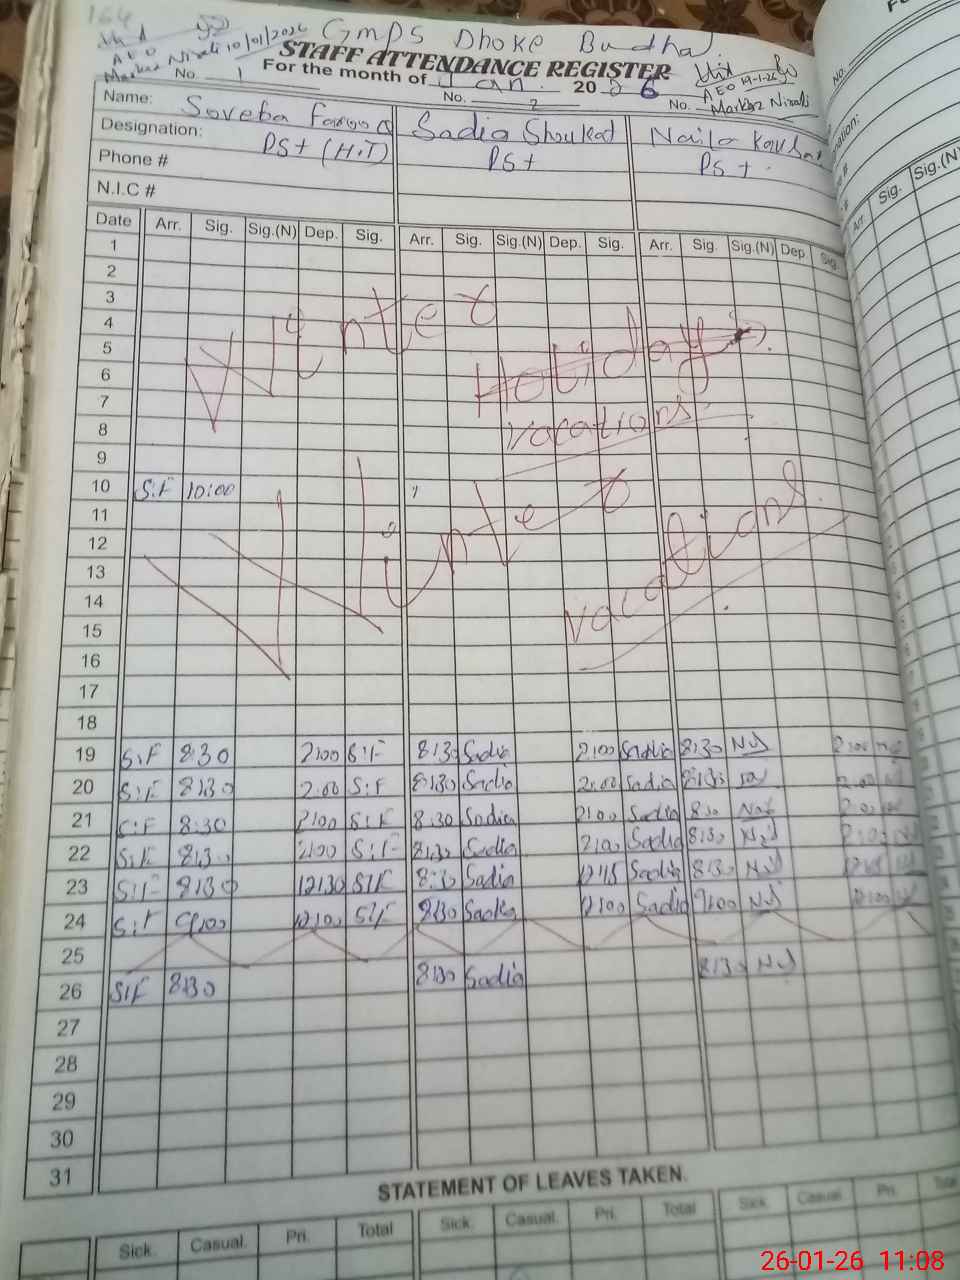 164
GMPS Dhoke Budhal.
AEO
Markaz Nirali 10/01/2026
STAFF ATTENDANCE REGISTER
AEO 19-1-26
Markaz Nirali
For the month of Jan. 2026
No. 1 No. 2 No.
Name: Soveba Farooq Sadia Shoukat Naila Kousar
Designation: PST (H.T) PST PST.
Phone #
N.I.C #
Date Arr. Sig. Sig.(N) Dep. Sig. Arr. Sig. Sig.(N) Dep. Sig. Arr. Sig. Sig.(N) Dep. Sig.
1
2
3
4
5
6
7
8
9
Winter Holidays.
vacations.
10 S.F 10:00
11
12
13
14
15
16
17
18
Winter vacations.
19 S.F 8:30 2:00 S.F 8:30 Sadia 2:00 Sadia 8:30 2:00
20 S.F 8:30 2:00 S.F 8:30 Sadia 2:00 Sadia 8:30 2:00
21 S.F 8:30 2:00 S.F 8:30 Sadia 2:00 Sadia 8:30 2:00
22 S.F 8:30 2:00 S.F 8:30 Sadia 2:00 Sadia 8:30 2:00
23 S.F 8:30 12:30 S.F 8:30 Sadia Sadia 8:30
24 S.F 9:00 12:00 S.F 8:30 Sadia 12:00 Sadia 9:00 12:00
25
26 S.F 8:30 8:30 Sadia 8:30
27
28
29
30
31
STATEMENT OF LEAVES TAKEN.
Sick. Casual. Pri. Total Sick. Casual. Pri. Total Sick. Casual. Pri. Total
No.
Arr. Sig. Sig.(N)
26-01-26 11:08